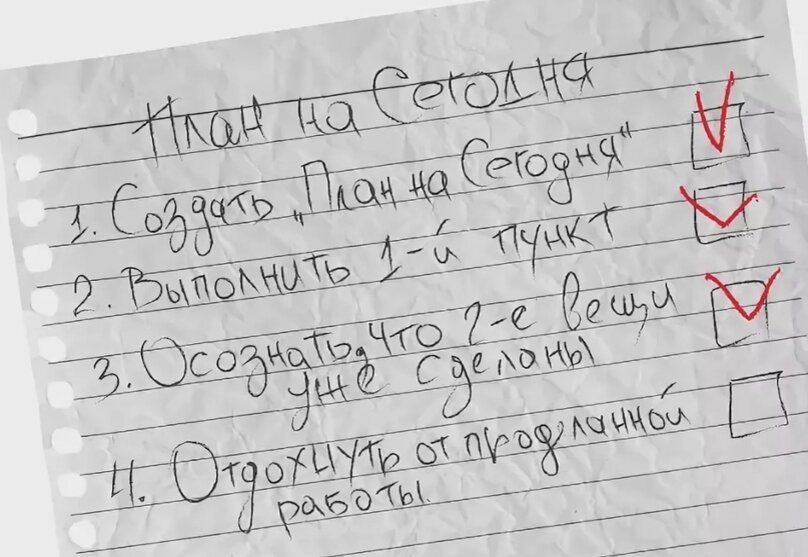 План на Сегодня
1. Создать „План на Сегодня"
2. Выполнить 1-й пункт
3. Осознать, что 2-е вещи
уже сделаны
4. Отдохнуть от проделанной
работы.